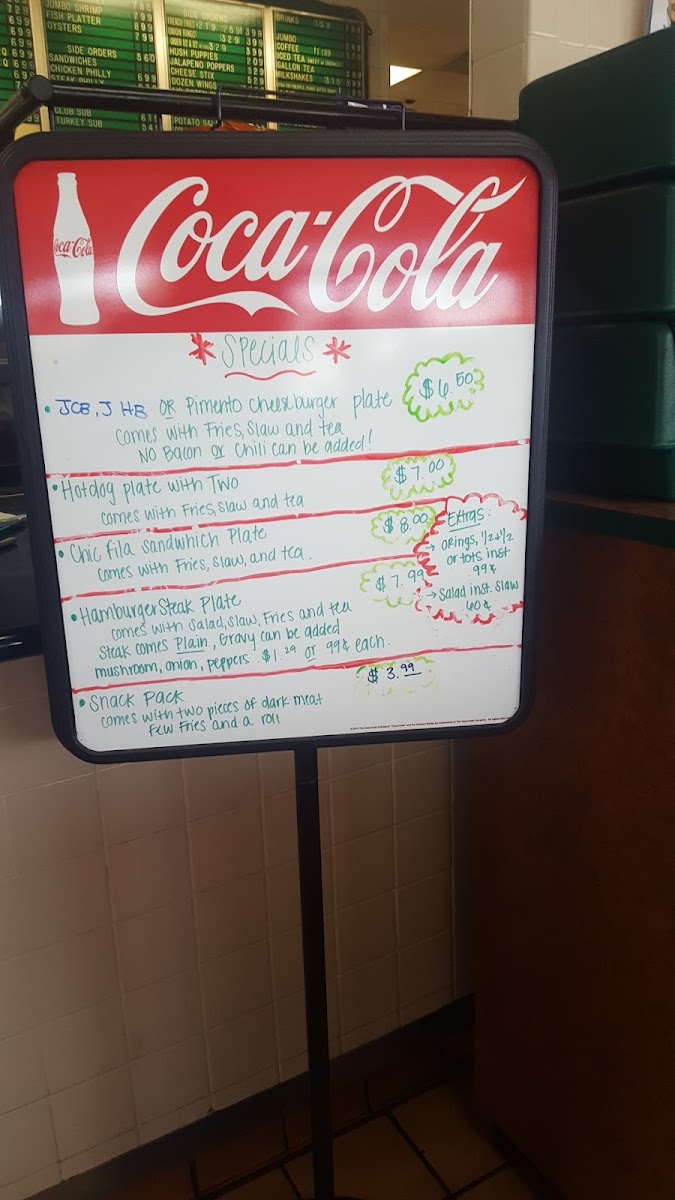 JUMBO SHRIMP
FISH PLATTER 899
OYSTERS 799
SIDE ORDERS
SANDWICHES 560
CHICKEN PHILLY
STEAK PHILLY
CLUB SUB
TURKEY SUB
SIDE ORDERS
HUSH PUPPIES
JALAPENO POPPERS
CHEESE STIX
DOZEN WINGS
POTATO
DRINKS
JUMBO
COFFEE
ICED TEA
GALLON TEA
MILKSHAKES
Coca-Cola
Coca-Cola
* Specials *
• JCB, J HB OR Pimento Cheeseburger plate $6.50
comes with Fries, Slaw and tea
NO Bacon or Chili can be added!
• Hotdog plate with Two $7.00
comes with Fries, Slaw and tea
• Chic fila Sandwhich Plate $8.00
comes with Fries, Slaw, and tea.
• Hamburger Steak Plate $7.99
comes with Salad, Slaw, Fries and tea
Steak comes Plain, Gravy can be added
mushroom, onion, peppers. $1.29 or 99¢ each.
Extras:
→ ORings, 1/2 + 1/2
or tots inst
99¢
→ Salad inst. Slaw
60¢
• Snack Pack $3.99
comes with two pieces of dark meat
Few Fries and a roll